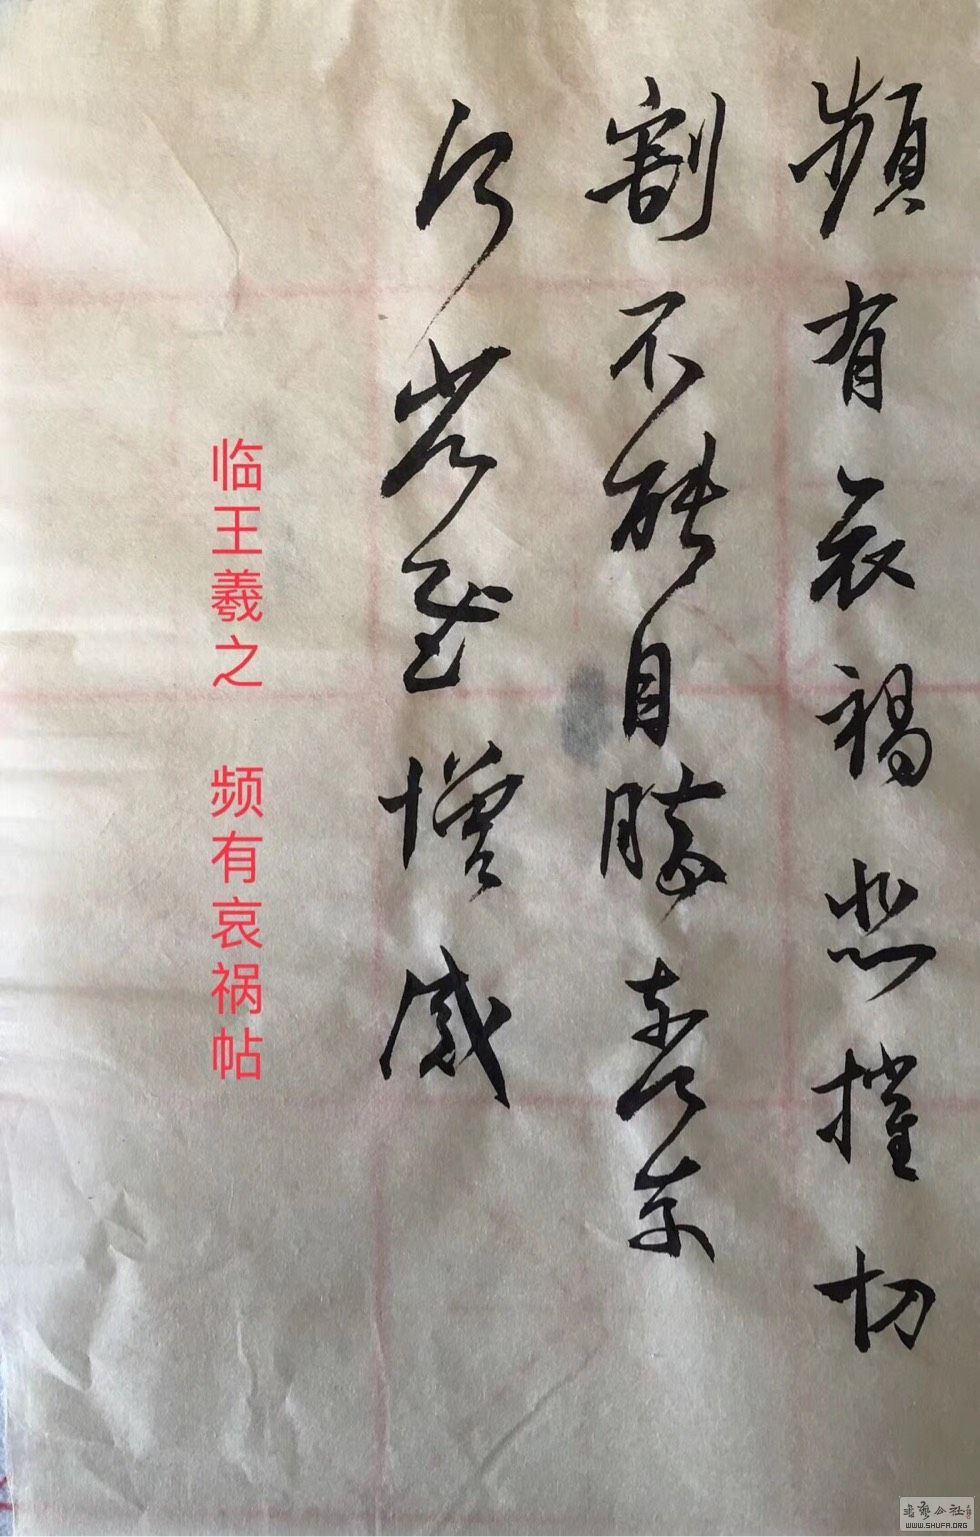 頻有哀禍悲摧切
割不能自勝奈何奈
何省慰增感
临王羲之 频有哀祸帖
书艺公社
WWW.SHUFA.ORG